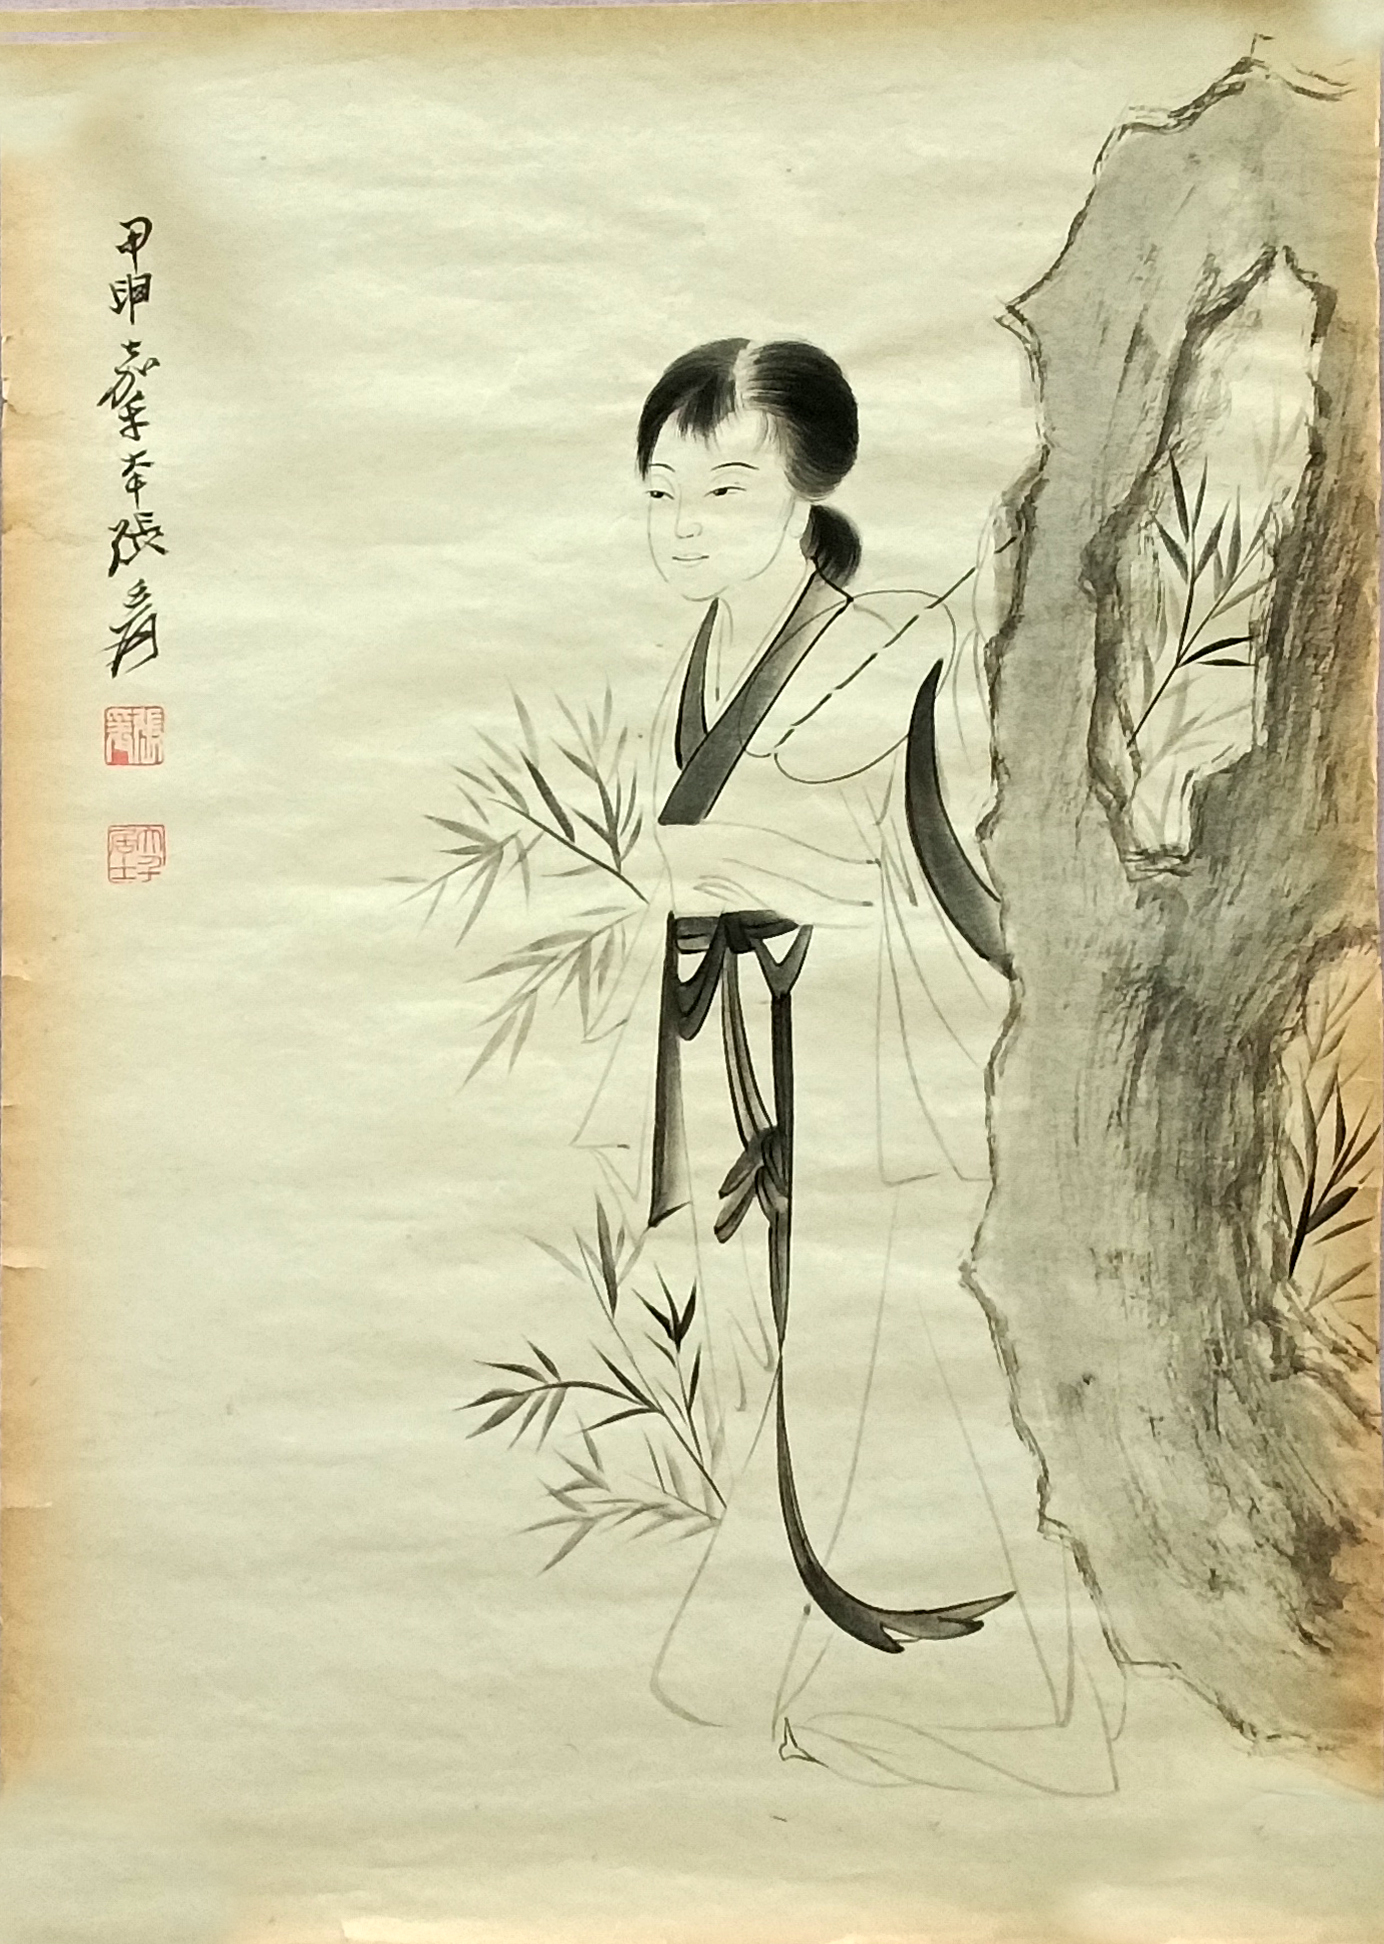 甲申嘉平大千張爰
張爰
大千居士